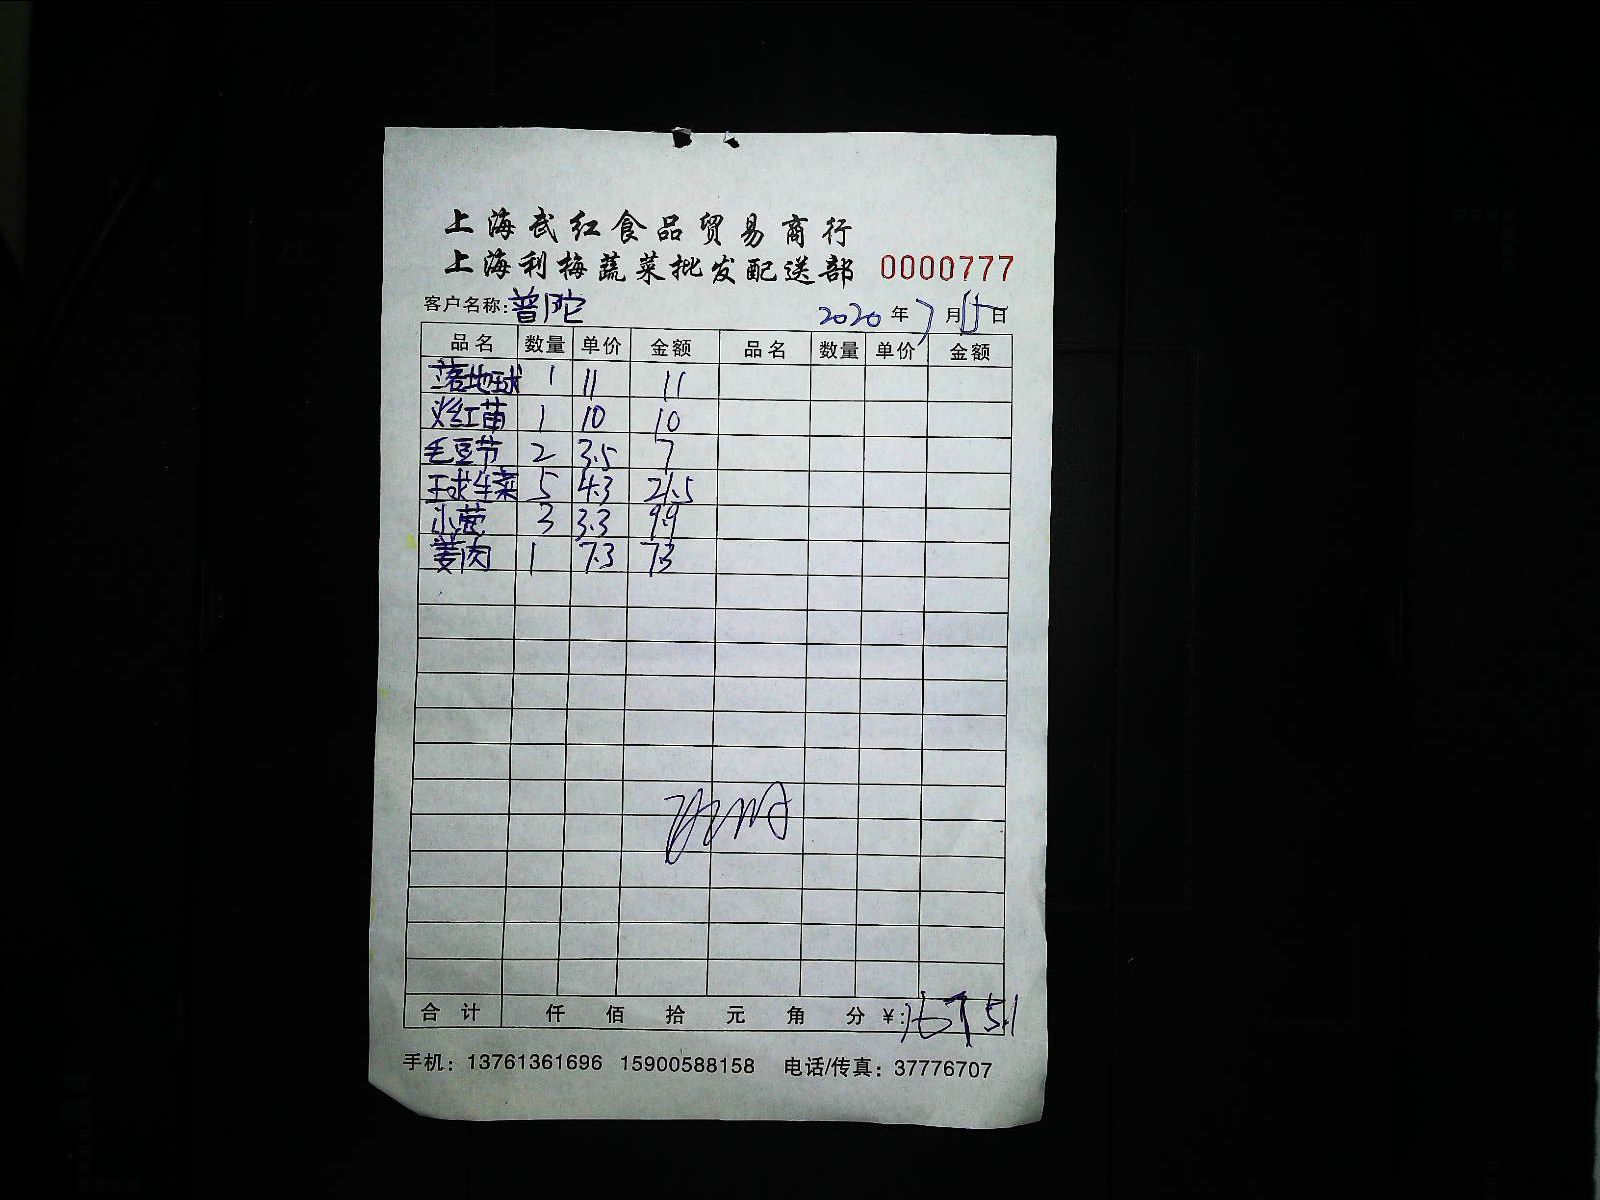 上海武红食品贸易商行
上海利梅蔬菜批发配送部 0000777
客户名称:普陀 2020年7月15日
品名 数量 单价 金额 品名 数量 单价 金额
落地球 1 11 11
火红苗 1 10 10
毛豆节 2 3.5 7
王求生菜 5 4.3 21.5
小葱 3 3.3 9.9
姜肉 1 7.3 7.3
合计 仟 佰 拾 元 角 分 ¥:
手机：13761361696 15900588158 电话/传真：37776707